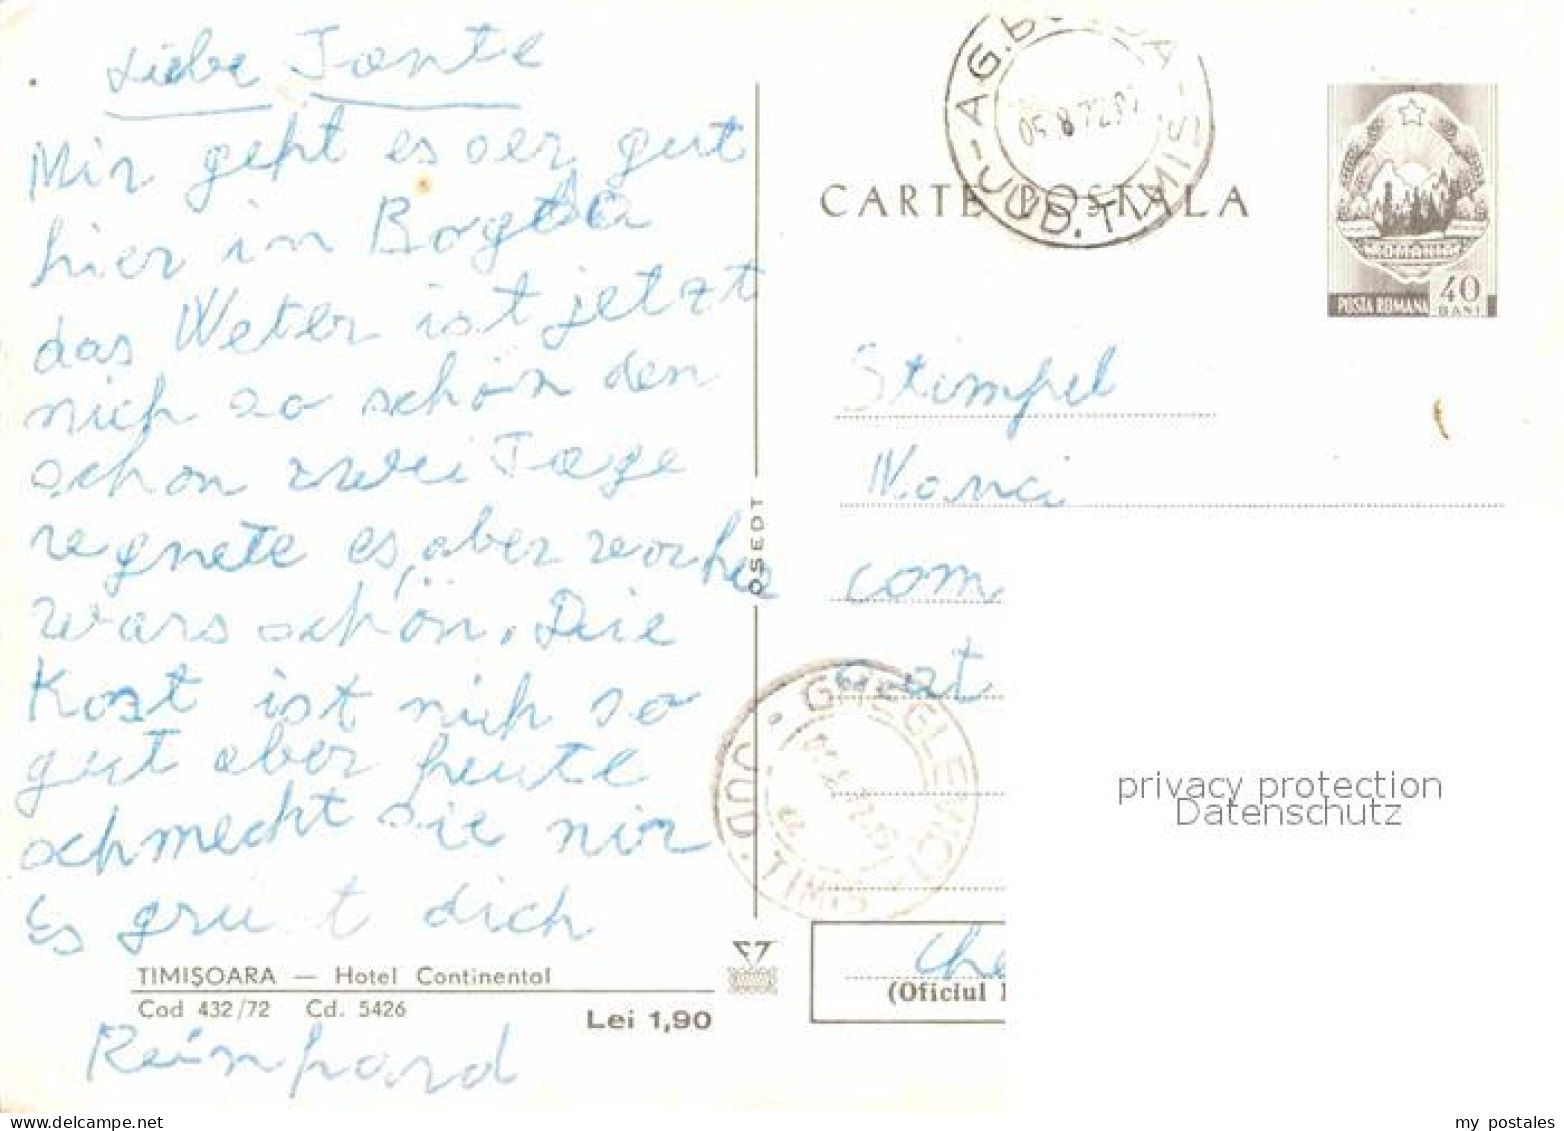 Liebe Tante
Mir geht es ser gut
hier in Bogda
das Weter ist jetzt
nich so schön den
schon zwei Tage
regnete es, aber vorher
wars schön. Die
Kost ist nich so
gut aber heute
schmecht sie mir
Es grüt dich
Reinhard
TIMIȘOARA — Hotel Continental
Cod 432/72 Cd. 5426
Lei 1,90
OSEDT
CARTE POSTALA
JUD. TIMIS
05.8.72
ROMÂNIA
POSTA ROMANA
40
BANI
Stimpel
com
sat
GHEGLEVICI
JUD. TIMIS
Che
(Oficiul
privacy protection
Datenschutz
my postales